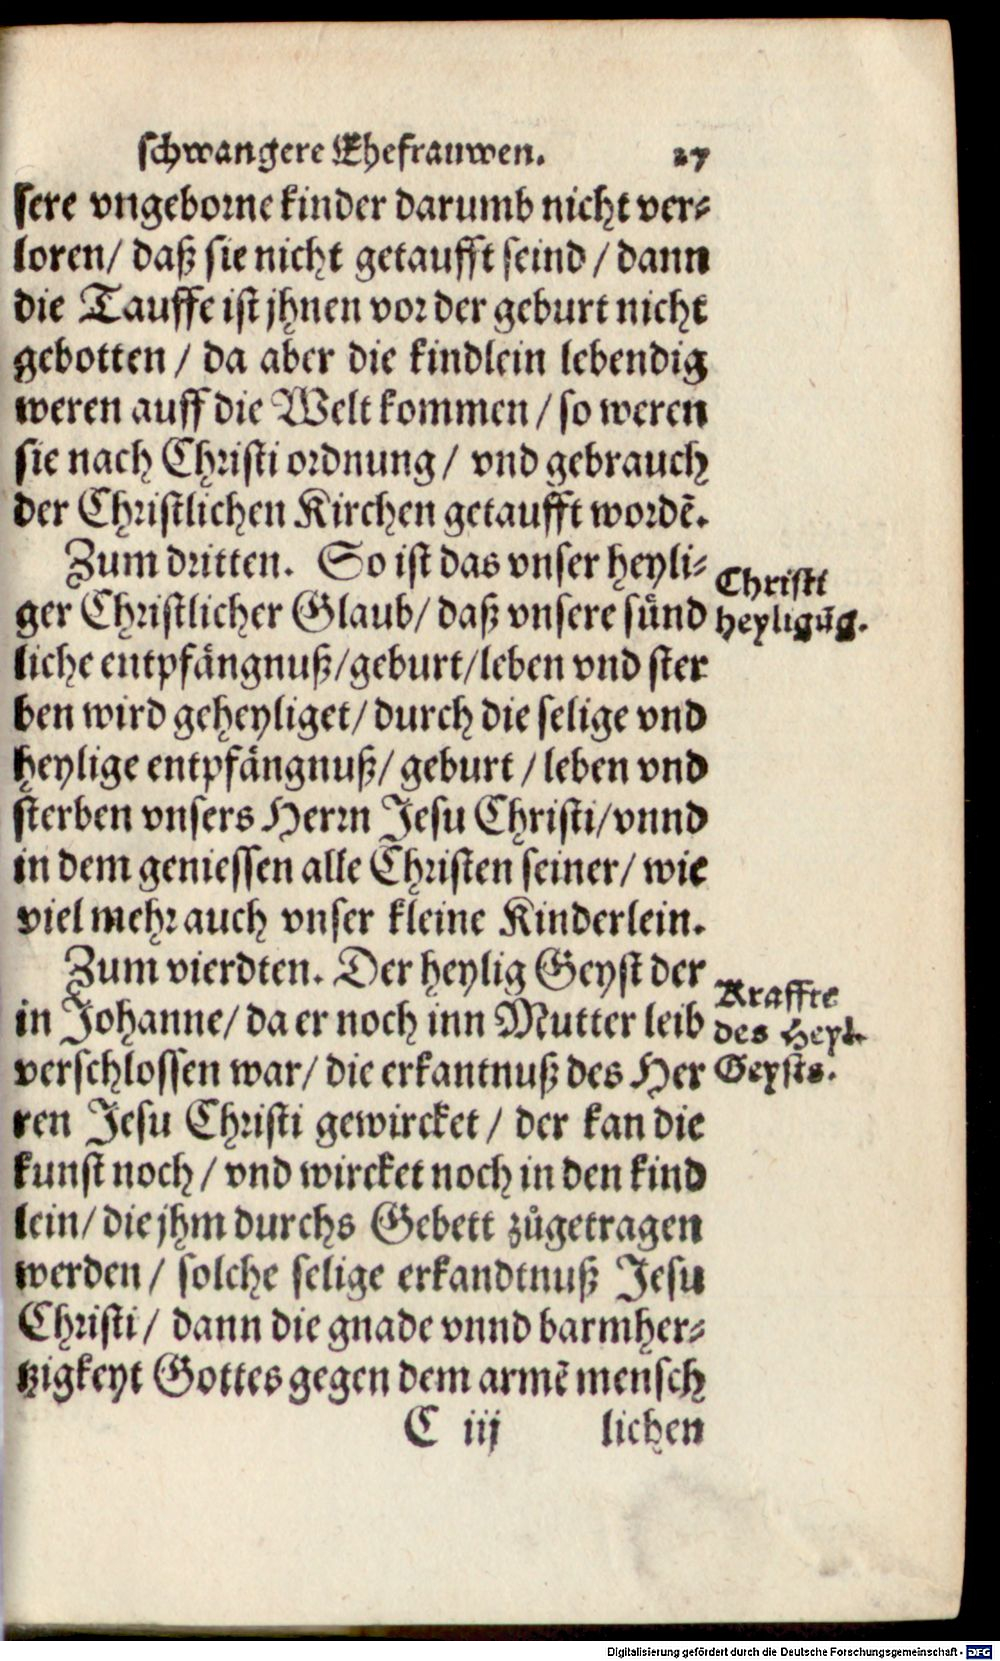 schwangere Ehefrauwen. 27
sere vngeborne kinder darumb nicht ver-
loren/ daß sie nicht getaufft seind / dann
die Tauffe ist jhnen vor der geburt nicht
gebotten / da aber die kindlein lebendig
weren auff die Welt kommen / so weren
sie nach Christi ordnung / vnd gebrauch
der Christlichen Kirchen getaufft wordẽ.
Zum dritten. So ist das vnser heyli-
ger Christlicher Glaub/ daß vnsere sünd
liche entpfängnuß/geburt/leben vnd ster
ben wird geheyliget/ durch die selige vnd
heylige entpfängnuß/ geburt / leben vnd
sterben vnsers Herrn Jesu Christi/vnnd
in dem geniessen alle Christen seiner/ wie
viel mehr auch vnser kleine Kinderlein.
Christi
heyligũg.
Zum vierdten. Der heylig Geyst der
in Johanne/ da er noch inn Mutter leib
verschlossen war/ die erkantnuß des Her
ren Jesu Christi gewircket / der kan die
kunst noch / vnd wircket noch in den kind
lein/ die jhm durchs Gebett zůgetragen
werden / solche selige erkandtnuß Jesu
Christi / dann die gnade vnnd barmher-
tzigkeyt Gottes gegen dem armẽ mensch
Kraffte
des Heyl.
Geysts.
C iij lichen
Digitalisierung gefördert durch die Deutsche Forschungsgemeinschaft - DFG